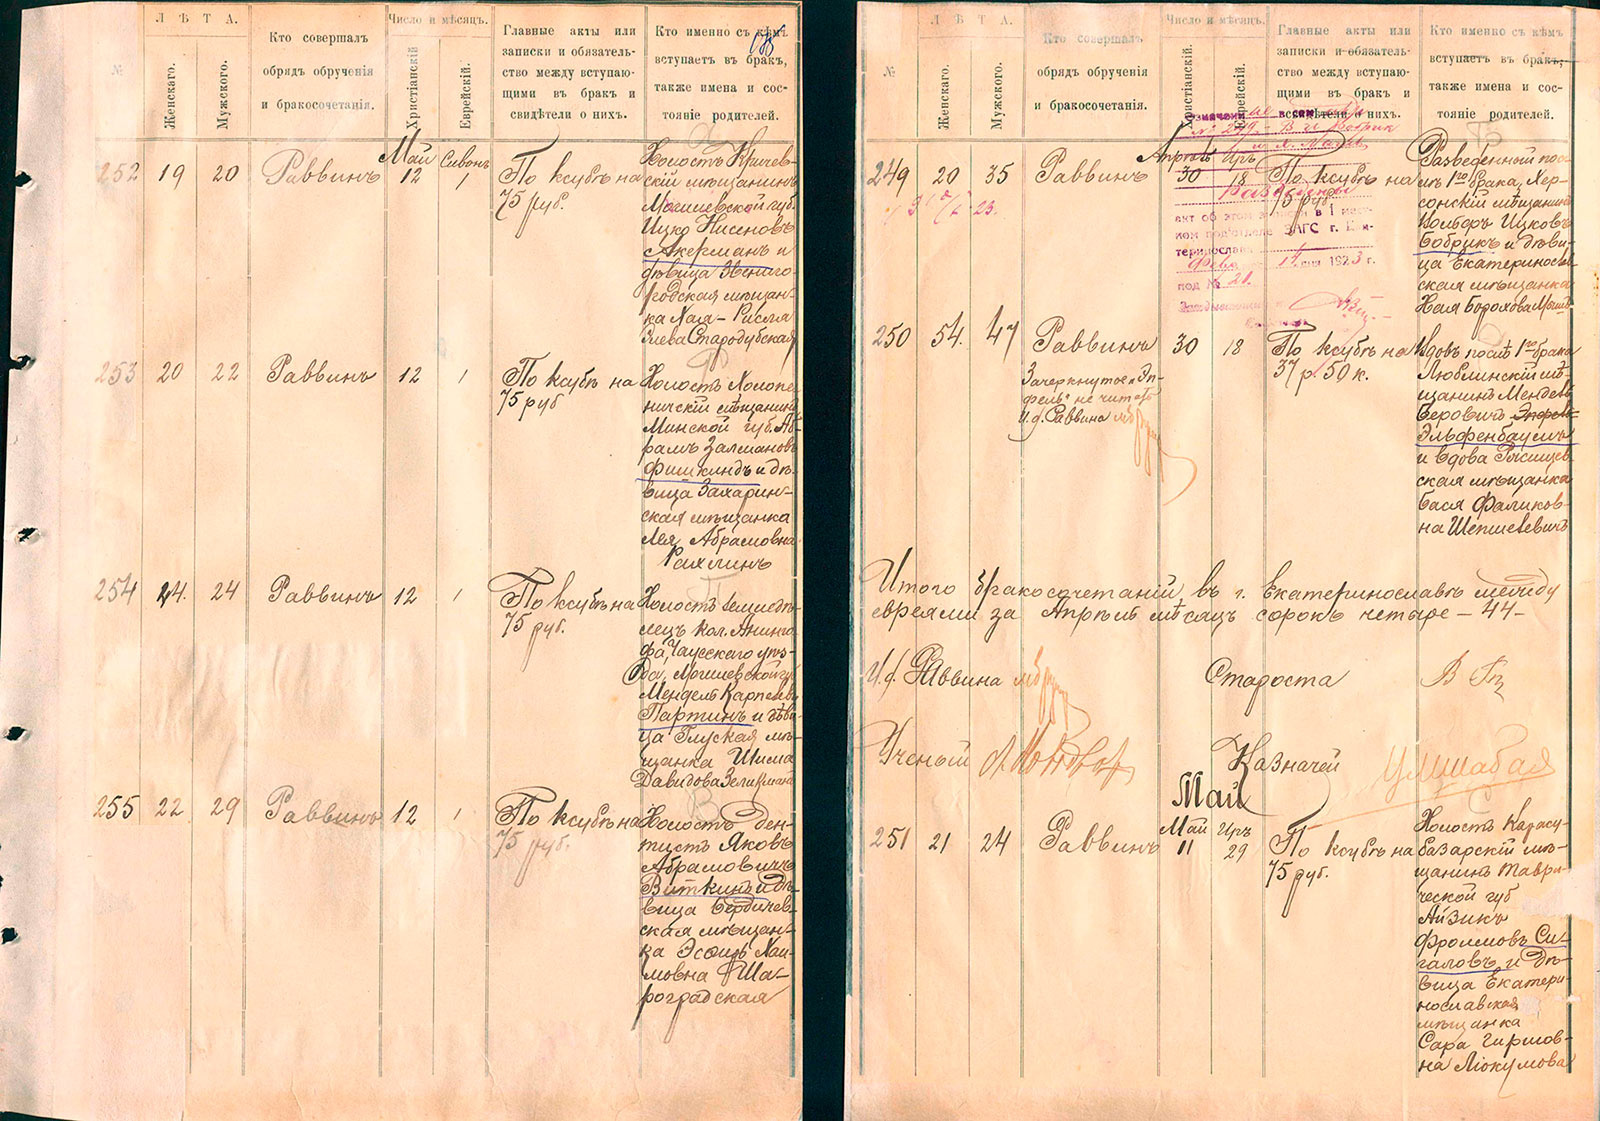 №
Л Ѣ Т А.
Женскаго.
Мужского.
Кто совершалъ
обрядъ обрученія
и бракосочетанія.
Число и мѣсяцъ.
Христіанскій
Еврейскій.
Главные акты или
записки и обязатель-
ство между вступаю-
щими въ бракъ и
свидѣтели о нихъ.
Кто именно съ кѣмъ
вступаетъ въ бракъ,
также имена и сос-
тояніе родителей.
252
19
20
Раввинъ
Май
12
Сивонъ
1
По ксубѣ на
75 руб.
Холостъ Кричев-
скій мѣщанинъ
Могилевской губ.
Ицко Нисеновъ
Акерманъ и
дѣвица Звениго-
родская мѣщан-
ка Хая-Рисля
Элева Стародубская
253
20
22
Раввинъ
12
1
По ксубѣ на
75 руб
Холостъ Холопе-
ничскій мѣщанинъ
Минской губ. Аб-
рамъ Залмановъ
Фишкиндъ и дѣ-
вица Захарин-
ская мѣщанка
Лея Абрамовна
Рахлинъ
254
24.
24
Раввинъ
12
1
По ксубѣ на
75 руб.
Холостъ земледѣ-
лецъ кол.
Чаусскаго уѣз-
да, Могилевской губ
Мендель Карпелевъ
Партинъ и дѣви-
ца Глуская мѣ-
щанка
Давидова Зеликманъ
255
22
29
Раввинъ
12
1
По ксубѣ на
75 руб.
Холостъ ден-
тистъ Яковъ
Абрамовичъ
Виткинъ и дѣ-
вица Бердичев-
ская мѣщан-
ка Эсѳирь Хаи-
мовна Ша-
роградская
№
Л Ѣ Т А.
Женскаго.
Мужского.
Кто совершалъ
обрядъ обрученія
и бракосочетанія.
Число и мѣсяцъ.
Христіанскій
Еврейскій.
Главные акты или
записки и обязатель-
ство между вступаю-
щими въ бракъ и
свидѣтели о нихъ.
Кто именно съ кѣмъ
вступаетъ въ бракъ,
также имена и сос-
тояніе родителей.
249
20
35
Раввинъ
Апрѣль
30
Иръ
18
По ксубѣ на
75 руб
Разведенный пос-
лѣ 1го брака, Хер-
сонскій мѣщанинъ
Ицковъ
Бобрикъ и дѣви-
ца Екатеринослав-
ская мѣщанка
Хая Борохова
акт об этом
ком под'отделе ЗАГС г. Ека-
теринослава
1923 г.
под № 21.
250
54.
47
Раввинъ
Зачеркнутое „Эп-
фель" не читать
И. д. Раввина
30
18
По ксубѣ на
37 р. 50 к.
Вдовъ послѣ 1го брака
Люблинскій мѣ-
щанинъ Мендель
Беровичъ
Эльфенбаумъ
и вдова
ская мѣщанка
Бася Фаликов-
на Шепшелевичъ
Итого бракосочетаній въ г. Екатеринославѣ между
евреями за Апрѣль мѣсяцъ сорокъ четыре – 44 –
И. д. Раввина
Староста
Ученый
Казначей
Май
251
21
24
Раввинъ
Май
11
Иръ
29
По ксубѣ на
75 руб.
Холостъ Карасу-
базарскій мѣ-
щанинъ Таври-
ческой губ
Айзикъ
Фроимовъ Си-
галовъ и дѣ-
вица Екатери-
нославская
мѣщанка
Сара Гиршов-
на Локумова